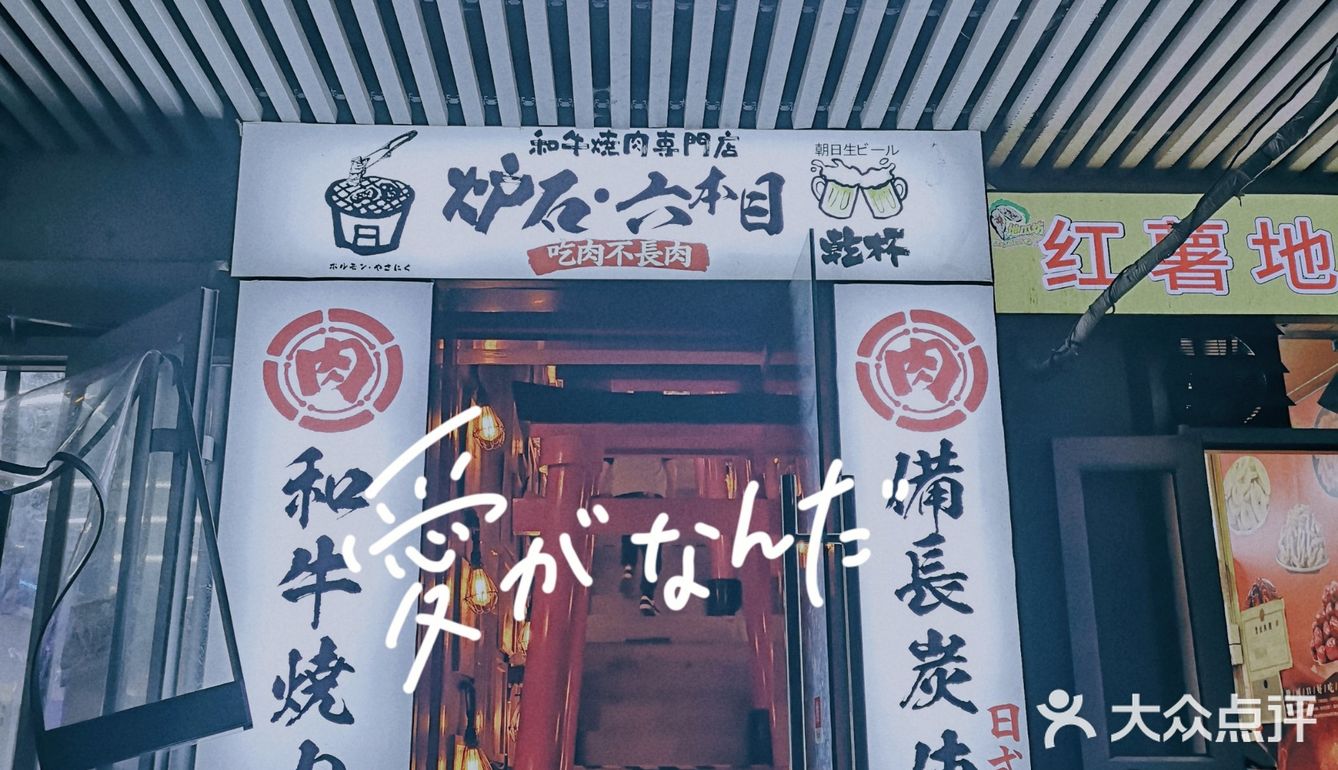 和牛燒肉專門店
炉石·六本目
吃肉不長肉
ホルモン・やさにく
朝日生ビール
乾杯
红薯地
肉
和牛燒
肉
備長炭
日式
愛がなんだ
大众点评